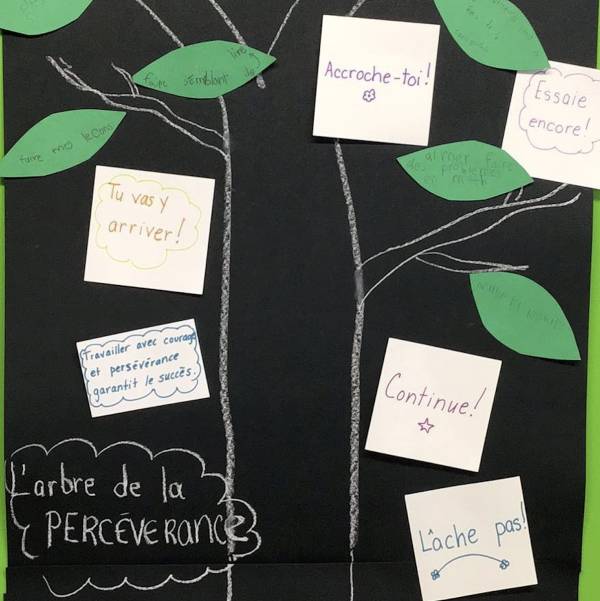 faire semblant
Accroche-toi!
Essaie
encore!
faire mes leçons
aimer faire
des problèmes
en math
Tu vas y
arriver!
Travailler avec courage
et persévérance
garantit le succès.
Continue!
L'arbre de la
PERCÉVERANCE
Lâche pas!